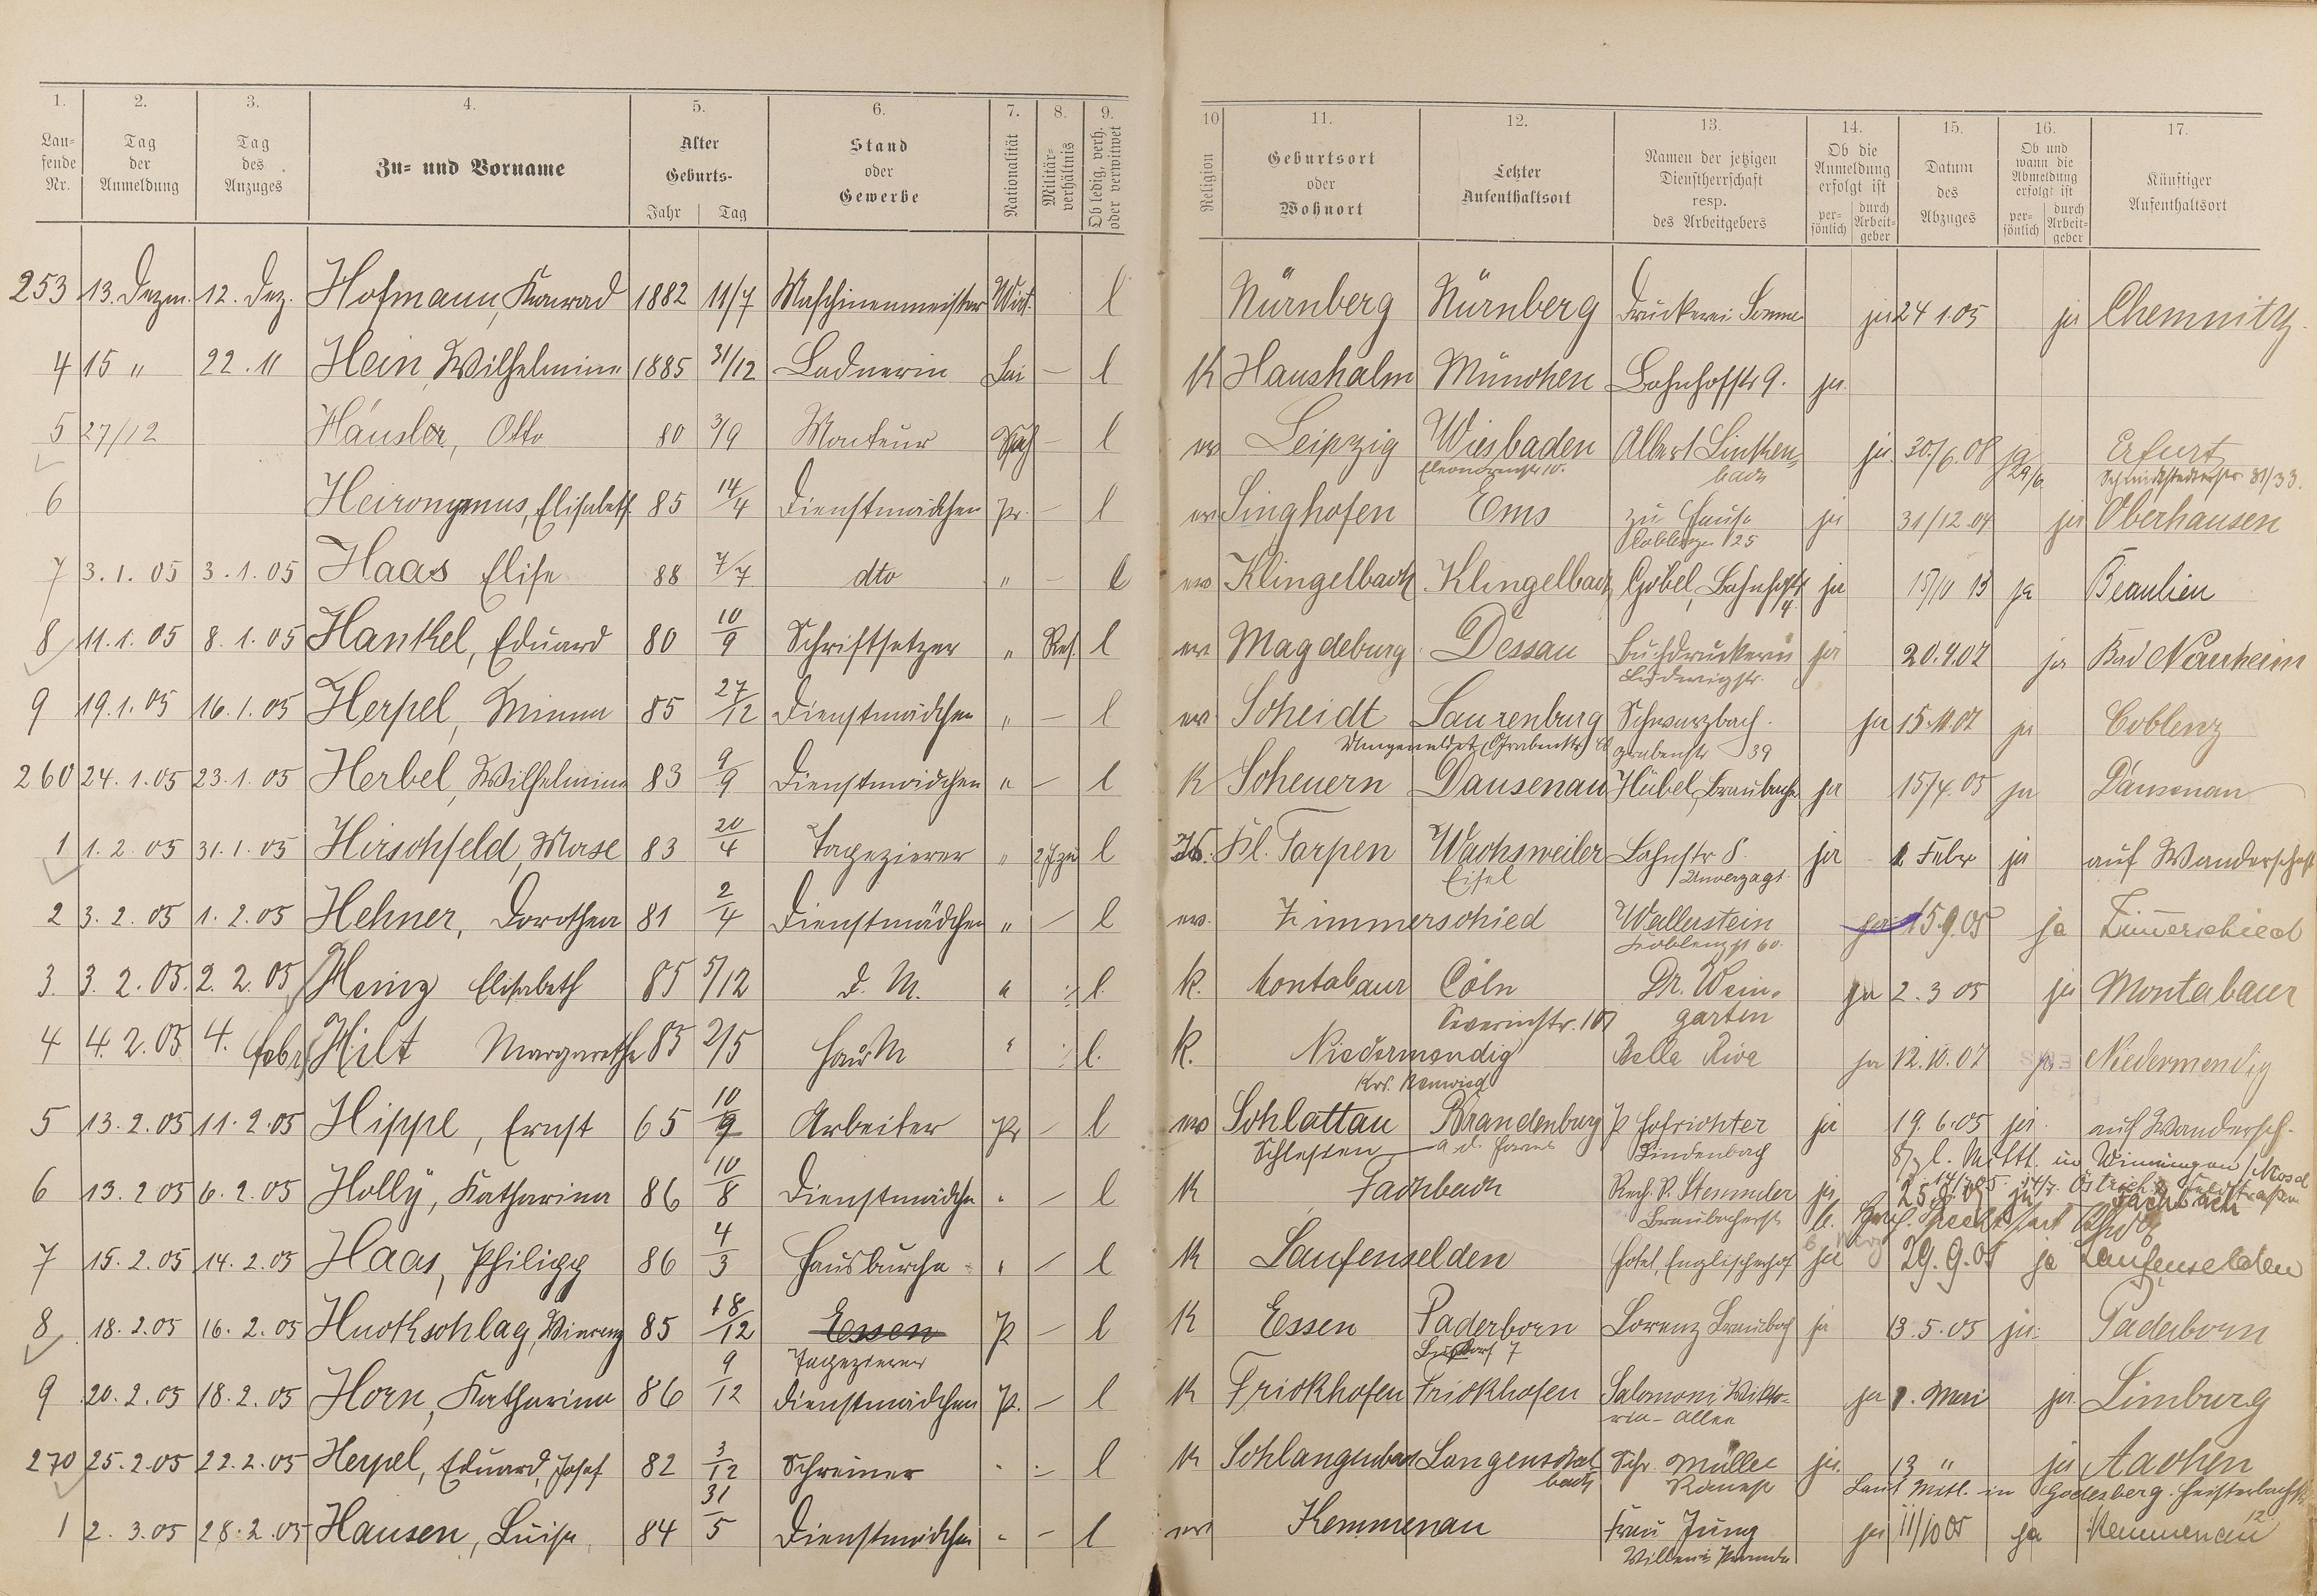 1. 2. 3. 4. 5. 6. 7. 8. 9. 10 11. 12. 13. 14. 15. 16. 17.
Laufende Nr. Tag der Anmeldung Tag des Anzuges Zu- und Vorname Alter Geburts- Jahr Tag Stand oder Gewerbe Nationalität Militärverhältnis Ob ledig, verh. oder verwitwet Religion Geburtsort oder Wohnort Letzter Aufenthaltsort Namen der jetzigen Dienstherrschaft resp. des Arbeitgebers Ob die Anmeldung erfolgt ist persönlich durch Arbeitgeber Datum des Abzuges Ob und wann die Abmeldung erfolgt ist persönlich durch Arbeitgeber Künftiger Aufenthaltsort
253 13. Dezm. 12. Dez. Hofmann, Konrad 1882 11/7 Maschinenmeister l Nürnberg Nürnberg Druckerei Sommer ja 24 1.05 ja Chemnitz
4 15 " 22. 11 Hein, Wilhelmine 1885 31/12 Ladnerin — l K Haushalm München Bahnhofstr 9. ja
5 27/12 Häusler, Otto 80 3/9 Monteur — l ev Leipzig Wiesbaden Albert Linkenbach ja 30./6.08 ja 29/6 Erfurt
Schmidtstedterstr 31/33.
6 Heironymus, Elisabeth 85 14/4 Dienstmädchen pr. — l ev Singhofen Ems zu Hause ja 31/12.04 ja Oberhausen
Coblenzer 125
7 3. 1. 05 3. 1. 05 Haas Elise 88 7/7 dto " — l ev Klingelbach Klingelbach Göbel, Bahnhofstr 4 ja 15/11 13 ja Beaulieu
8 11. 1. 05 8. 1. 05 Hankel, Eduard 80 10/9 Schriftsetzer " Res. l ev Magdeburg Dessau Buchdruckerei ja 20.4.07 ja Bad Nauheim
Ludwigstr.
9 19. 1. 05 16. 1. 05 Herpel, Minna 85 27/12 Dienstmädchen " — l ev Scheidt Laurenburg Schwarzbach. ja 15.11.07 ja Coblenz
Umgemeldet Grabenstr grabenstr 39
260 24. 1. 05 23. 1. 05 Herbel, Wilhelmine 83 9/9 Dienstmädchen " — l K Scheuern Dausenau Hübel, Braubach. ja 15/4.05 ja Dausenau
1 1. 2. 05 31. 1. 05 Hirschfeld, Mose 83 20/4 Tapezierer " l Is. Kl. Tarpen Wachsweiler Lahnstr 8. ja 1. Febr ja auf Wanderschaft
Eifel Unverzagt
2 3. 2. 05 1. 2. 05 Hehner, Dorothea 81 2/4 Dienstmädchen " — l ev. Zimmerschied Wallerstein ja 15.9.05 ja Zimmerschied
Koblenzst 60.
3. 3. 2. 05. 2. 2. 05 Heinz Elisabeth 85 5/12 d. M. " l. k. Montabaur Cöln Dr. Weingarten ja 2. 3 05 ja Montabaur
Severinstr. 107
4 4. 2. 05 4. Febr. Hilt Margarethe 85 2/5 HausM " l. k. Niedermendig Bella Riva ja 12.10.07 ja Niedermendig
Krs.
5 13. 2. 05 11. 2. 05 Hippe, Ernst 65 10/9 Arbeiter Pr — l ev Schlattau Brandenburg P Hofrichter ja 19. 6. 05 ja. auf Wandersch.
Schlesien a. d. Havel Lindenbach
6 13. 2 05 6. 2. 05 Holly, Katharina 86 10/8 Dienstmädchen " — l K Fachbach Stemmler ja 25.8.05 ja Fachbach
Braubacherstr
7 15. 2. 05 14. 2. 05 Haas, Philipp 86 4/3 Hausbursche " — l K Laufenselden Hotel Englischerhof ja 29. 9. 05 ja Laufenselden
8 18. 2. 05 16. 2. 05 Huckschlag, Vincenz 85 18/12 Essen P — l K Essen Paderborn Lorenz Braubach ja 13. 5. 05 ja. Paderborn
Tapezierer
9 20. 2. 05 18. 2. 05 Horn, Katharina 86 9/12 Dienstmädchen P. — l K Frickhofen Frickhofen Salomoni, Viktoria-Allee ja 1. Mai ja Limburg
270 25. 2. 05 22. 2. 05 Herpel, Eduard, Josef 82 3/12 Schreiner " — l K Schlangenbad Langenschwalbach Schr. Müller ja. 13 " ja Aachen
Römerstr Laut Mittl. in Godesberg.
1 2. 3. 05 28. 2. 05 Hausen, Luise 84 31/5 Dienstmädchen " — l ev Kemmenau Frau Jung ja 11/10 05 ja Kemmenau